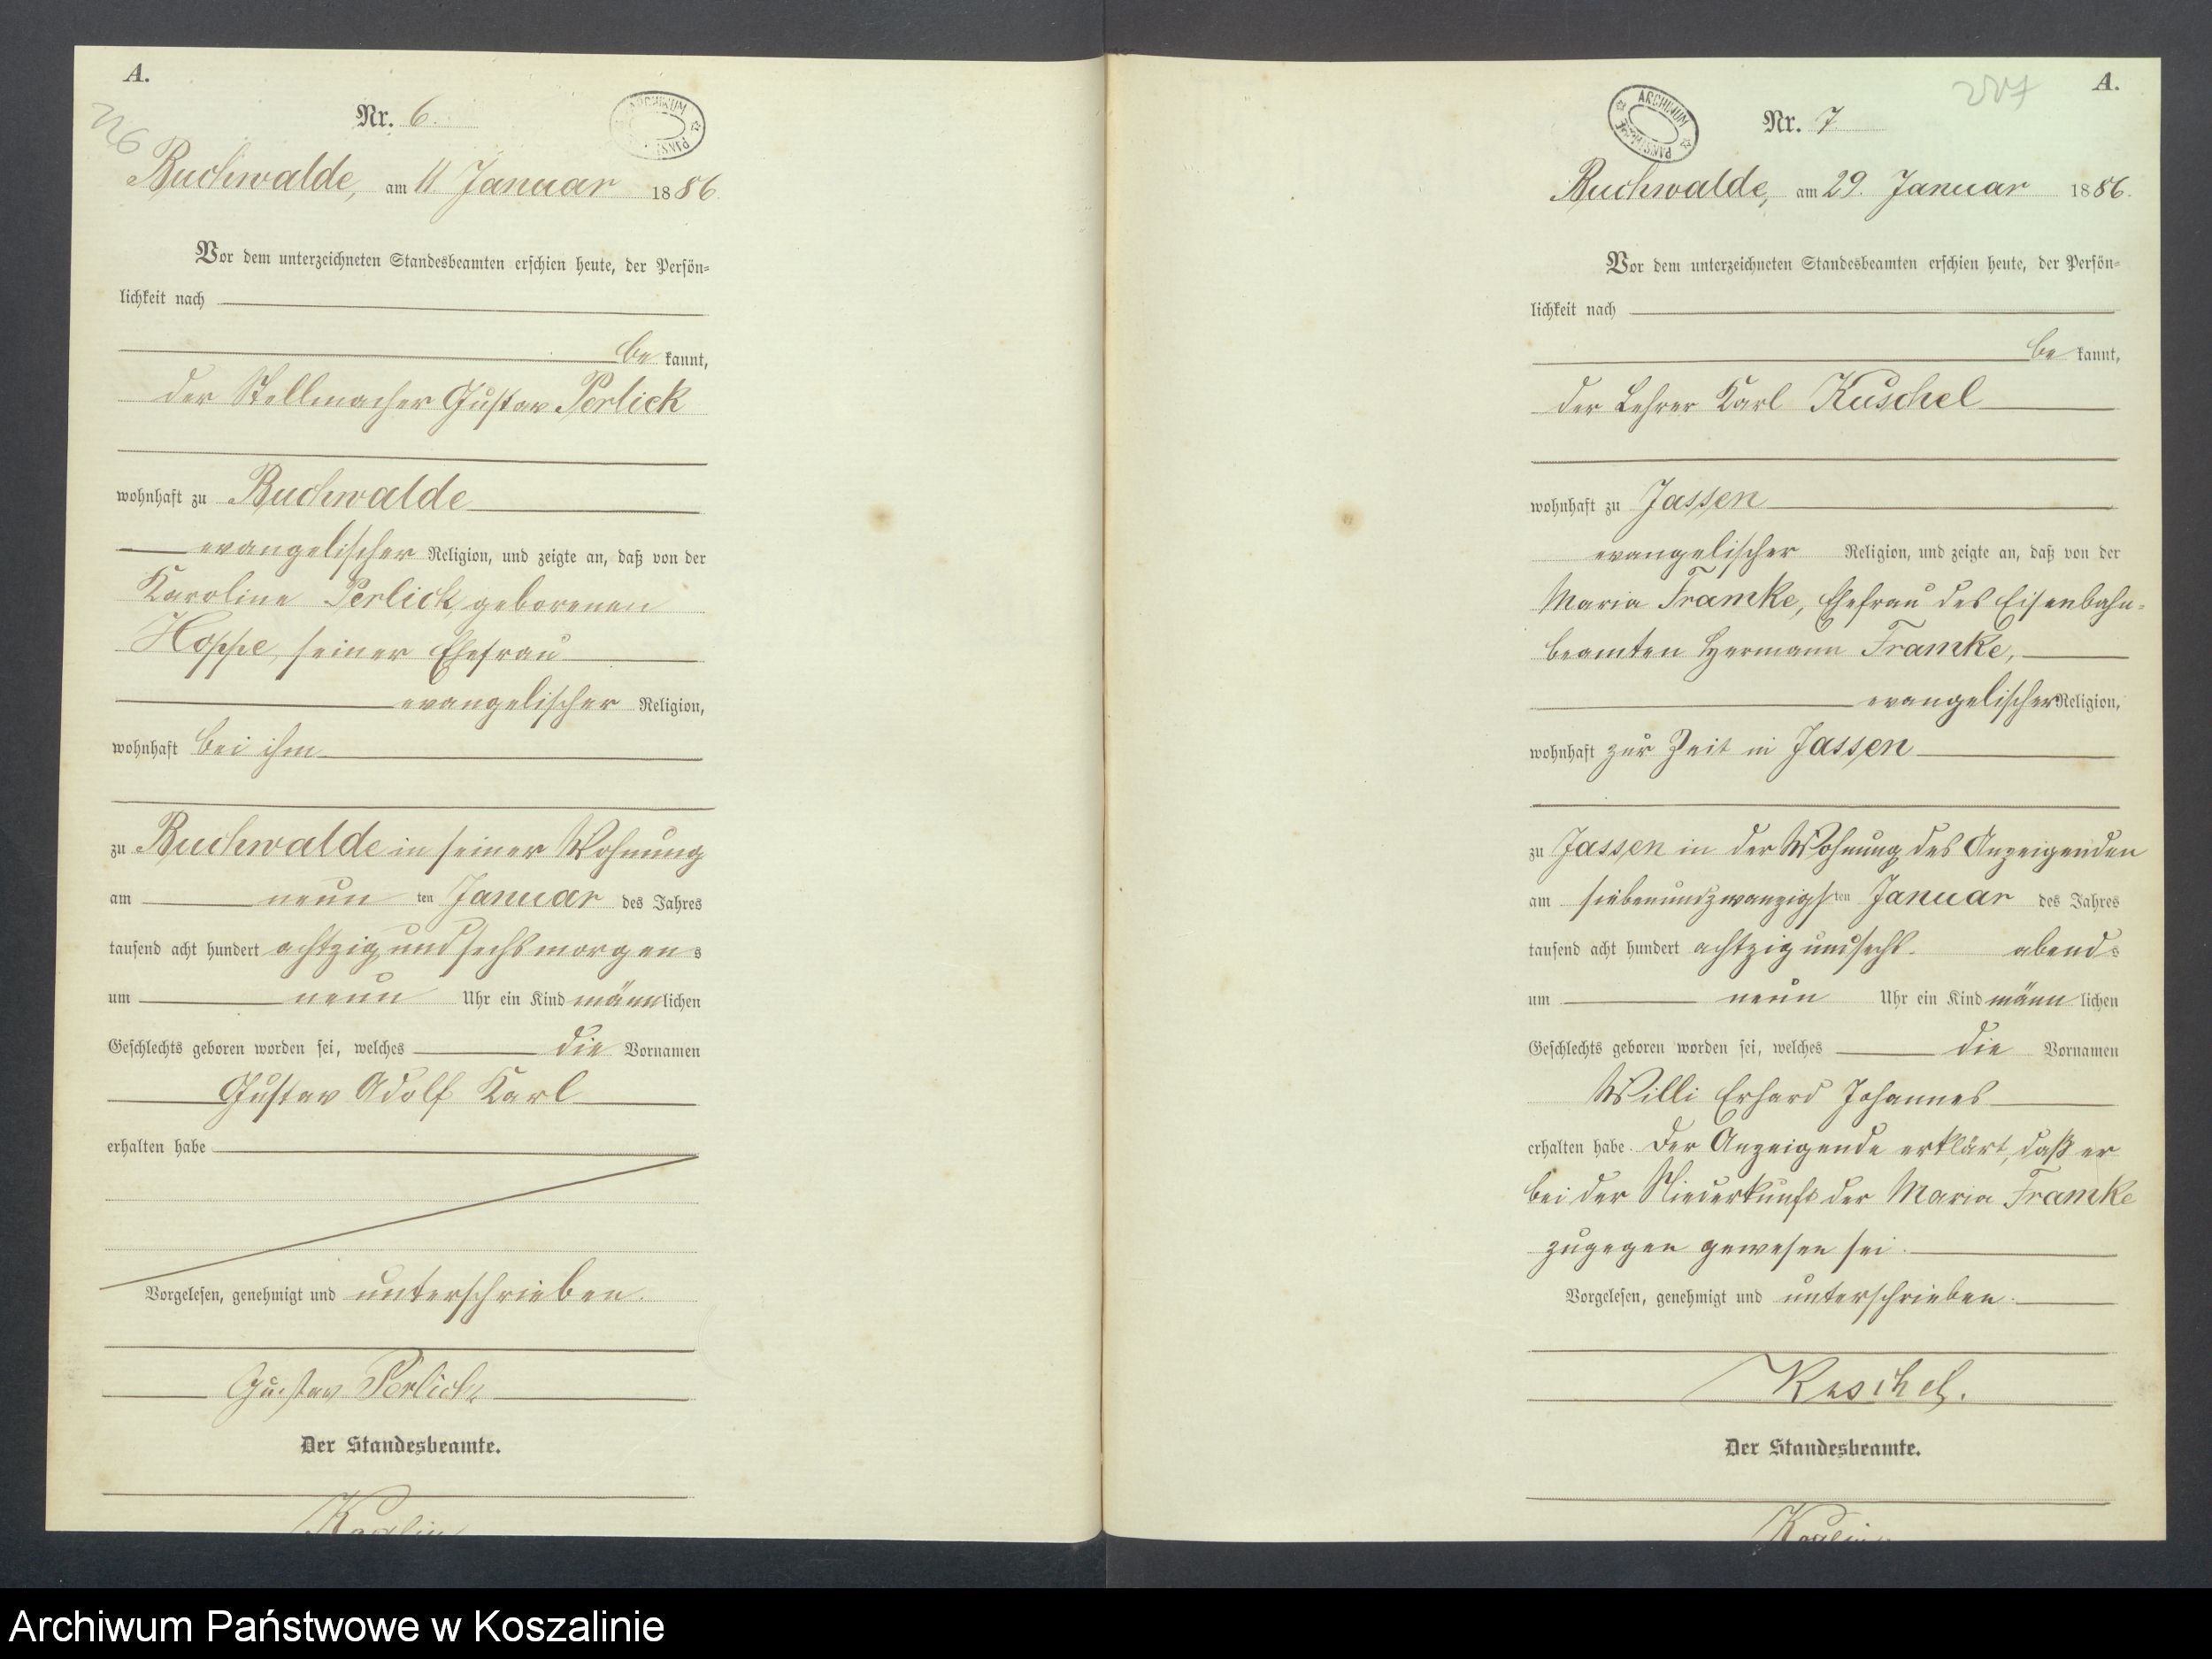 A.
Nr. 6.
ARCHIWUM
Buchwalde, am 11 Januar 1886.
Vor dem unterzeichneten Standesbeamten erschien heute, der Persön-
lichkeit nach
be kannt,
der Stellmacher Gustav Perlick
wohnhaft zu Buchwalde
evangelischer Religion, und zeigte an, daß von der
Karoline Perlick, geborenen
Hoppe, seiner Ehefrau
evangelischer Religion,
wohnhaft bei ihm
zu Buchwalde in seiner Wohnung
am neun ten Januar des Jahres
tausend acht hundert achtzig und sechs morgen s
um neun Uhr ein Kind männlichen
Geschlechts geboren worden sei, welches die Vornamen
Gustav Adolf Karl
erhalten habe
Vorgelesen, genehmigt und unterschrieben.
Gustav Perlick
Der Standesbeamte.
A.
227
Nr. 7
ARCHIWUM
Buchwalde, am 29. Januar 1886.
Vor dem unterzeichneten Standesbeamten erschien heute, der Persön-
lichkeit nach
be kannt,
der Lehrer Karl Kuschel
wohnhaft zu Jassen
evangelischer Religion, und zeigte an, daß von der
Maria Framke, Ehefrau des Eisenbahn-
beamten Hermann Framke,
evangelischer Religion,
wohnhaft zur Zeit in Jassen
zu Jassen in der Wohnung des Anzeigenden
am siebenundzwanzigsten Januar des Jahres
tausend acht hundert achtzig und sechs abends
um neun Uhr ein Kind männ lichen
Geschlechts geboren worden sei, welches die Vornamen
Willi Erhard Johannes
erhalten habe. Der Anzeigende erklärt, daß er
bei der Niederkunft der Maria Framke
zugegen gewesen sei.
Vorgelesen, genehmigt und unterschrieben.
Kuschel.
Der Standesbeamte.
Archiwum Państwowe w Koszalinie